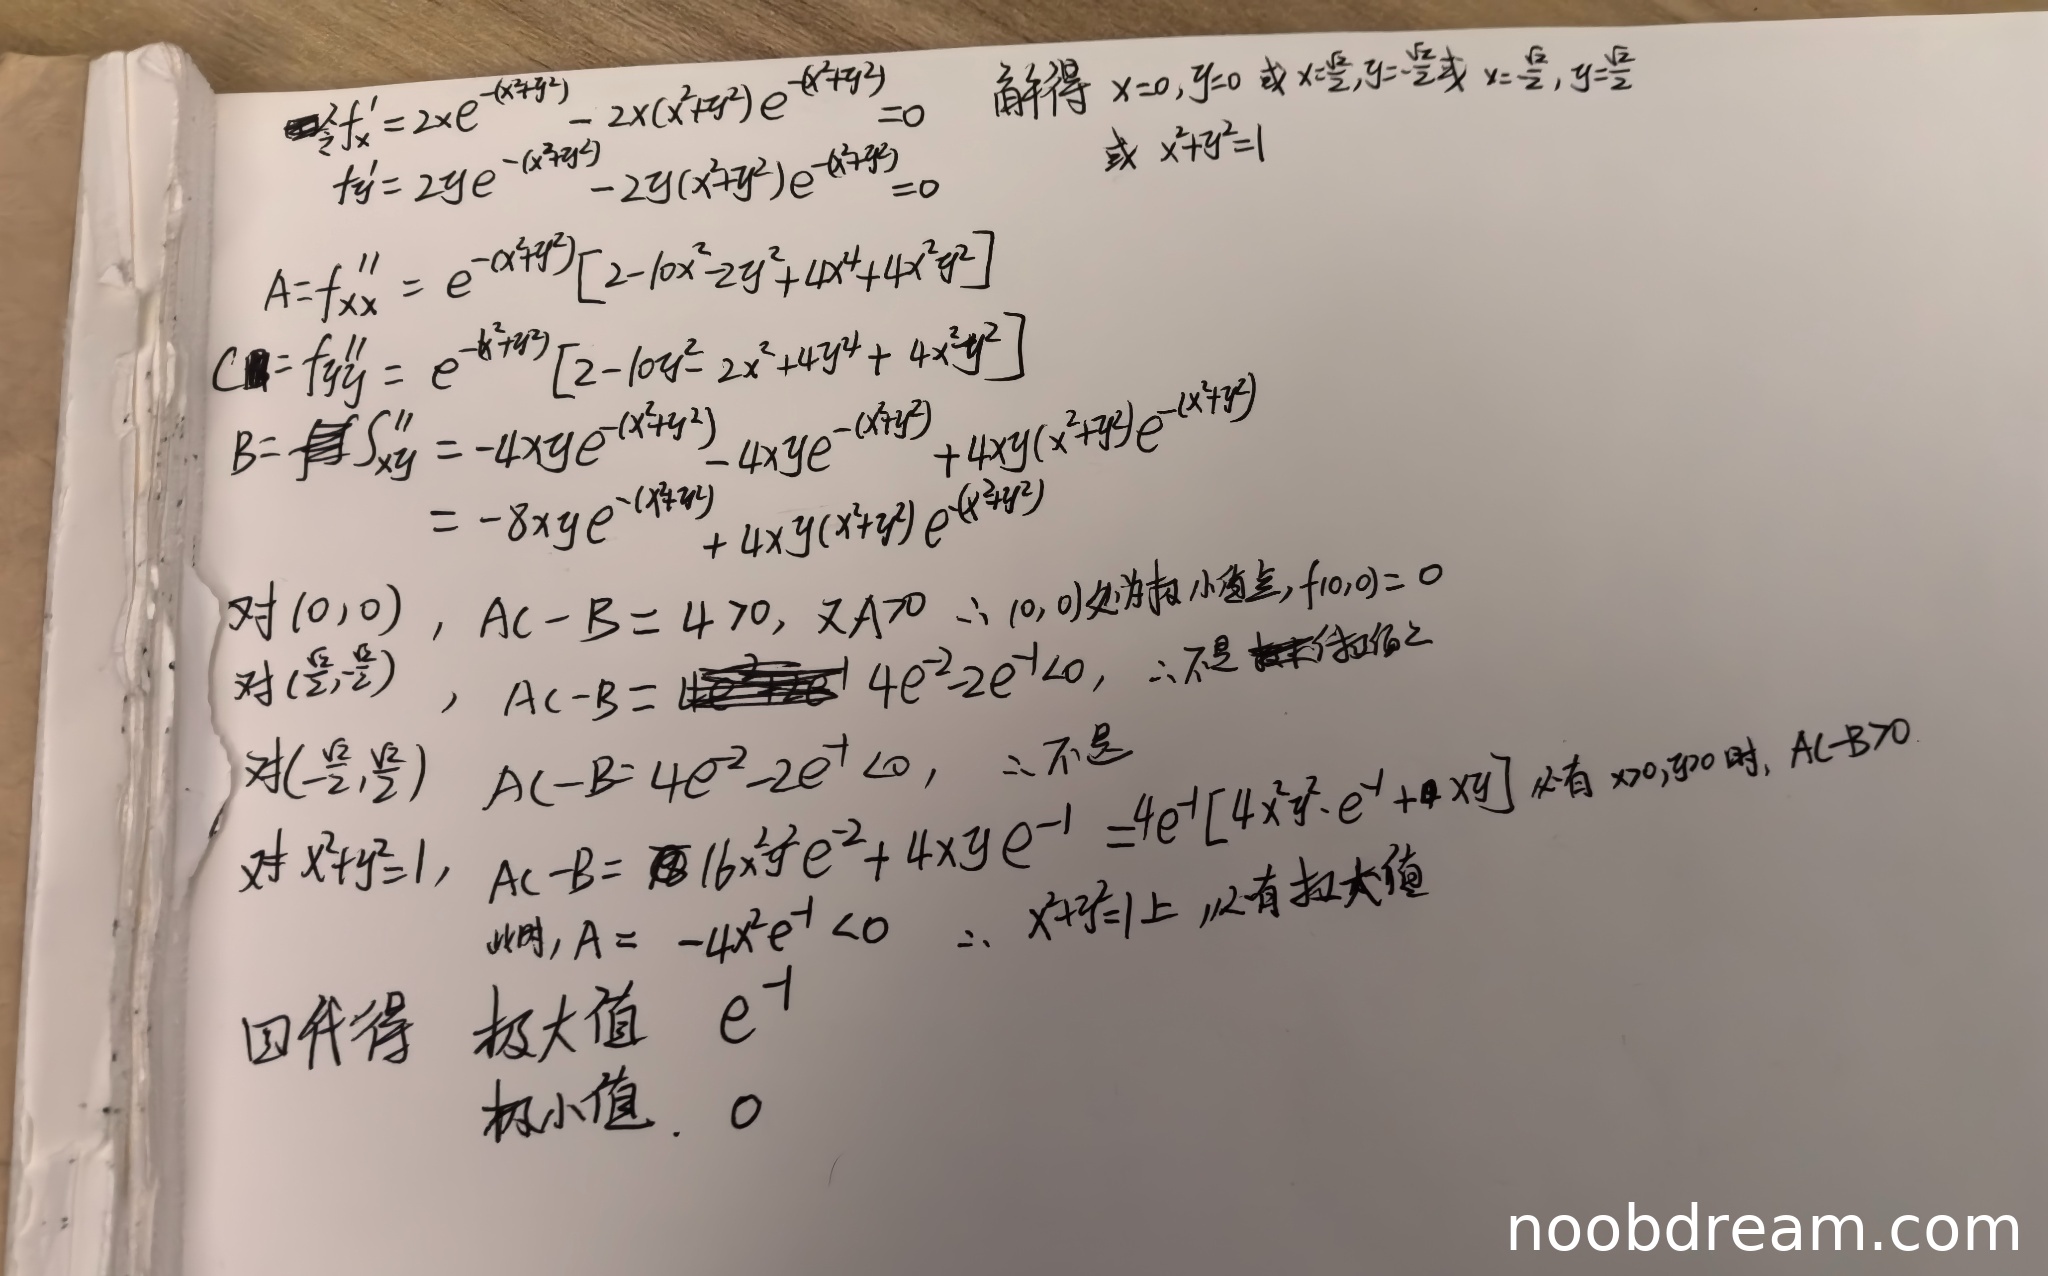 令f'x = 2xe^{-(x²+y²)} - 2x(x²+y²)e^{-(x²+y²)} = 0 解得 x=0, y=0 或 x=√2/2, y=-√2/2 或 x=-√2/2, y=√2/2
f'y = 2ye^{-(x²+y²)} - 2y(x²+y²)e^{-(x²+y²)} = 0 或 x²+y²=1
A=f''xx = e^{-(x²+y²)}[2-10x²-2y²+4x⁴+4x²y²]
C = f''yy = e^{-(x²+y²)}[2-10y²-2x²+4y⁴+4x²y²]
B= f''xy = -4xye^{-(x²+y²)} - 4xye^{-(x²+y²)} + 4xy(x²+y²)e^{-(x²+y²)}
= -8xye^{-(x²+y²)} + 4xy(x²+y²)e^{-(x²+y²)}
对(0,0), AC-B = 4>0, 又A>0 ∴(0,0)处为极小值点, f(0,0)=0
对(√2/2,-√2/2), AC-B = 4e^{-2}-2e^{-1}<0, ∴不是极值
对(-√2/2,√2/2) AC-B = 4e^{-2}-2e^{-1}<0, ∴不是
对x²+y²=1, AC-B = 16x²y²e^{-2}+4xye^{-1} = 4e^{-1}[4x²y²·e^{-1}+xy] 必有 x>0,y>0时, AC-B>0.
此时, A = -4x²e^{-1}<0 ∴ x²+y²=1上, 必有极大值
回代得 极大值 e^{-1}
极小值. 0
noobdream.com